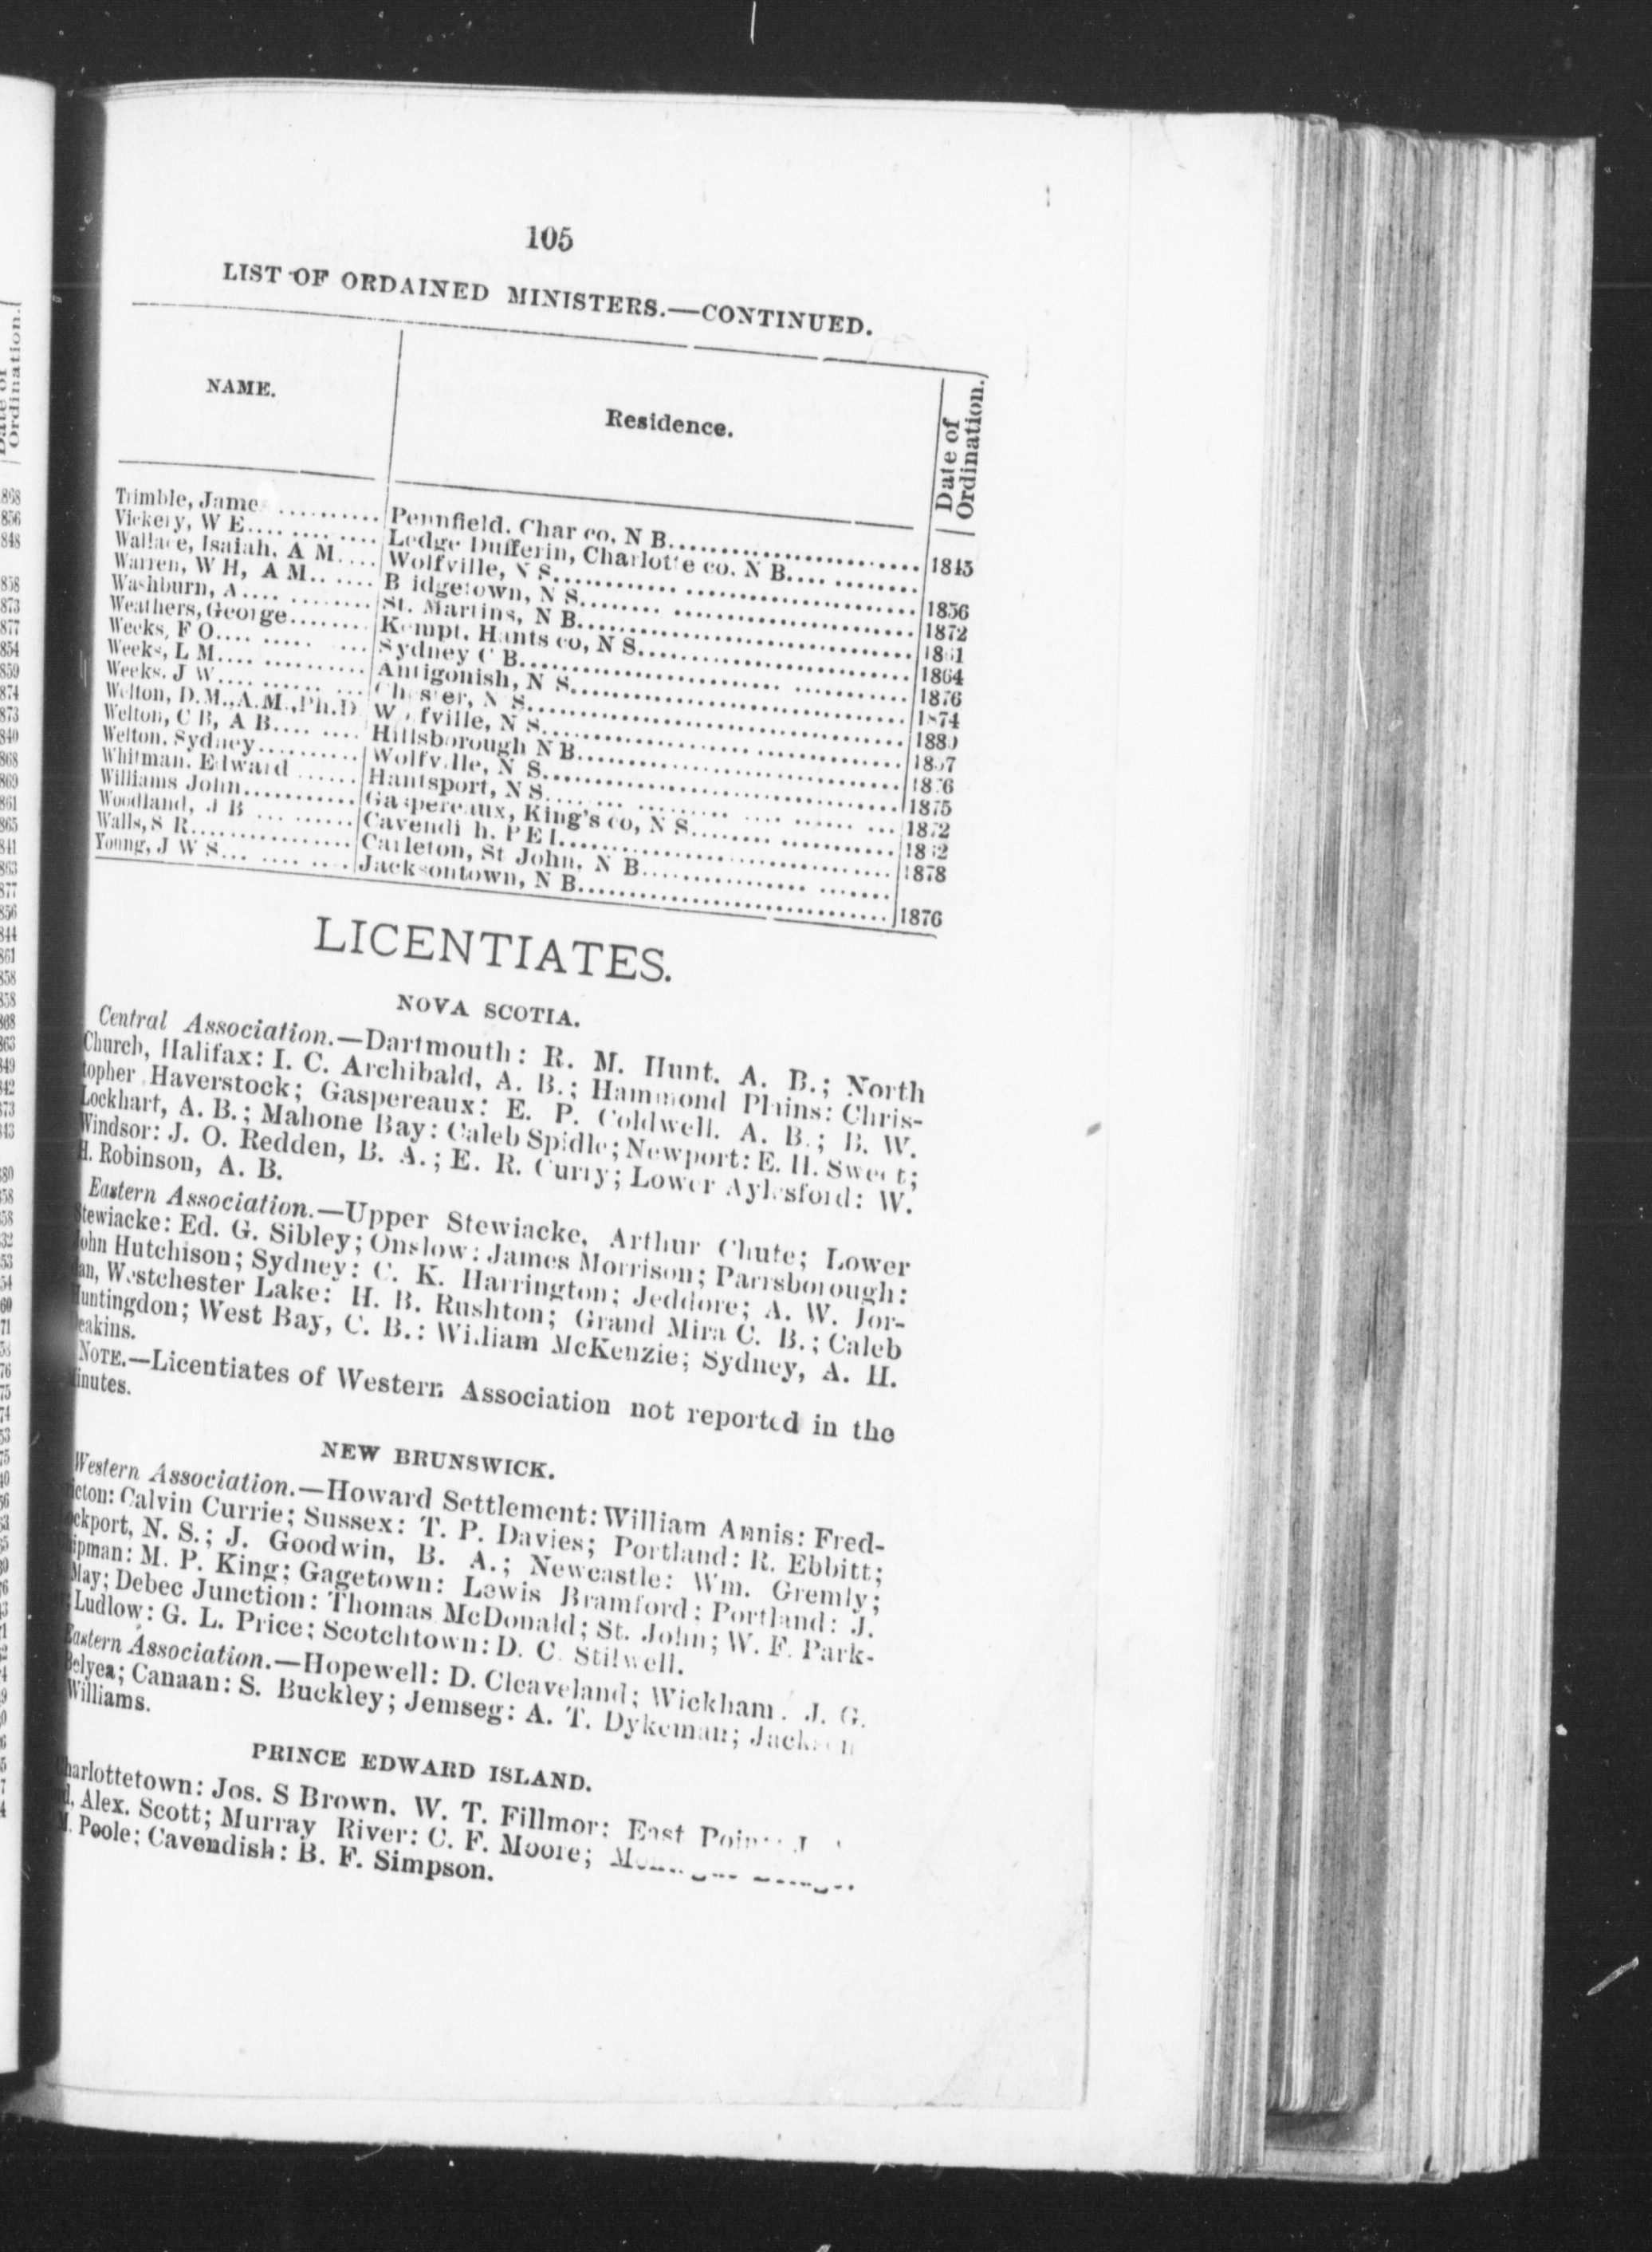 105
LIST OF ORDAINED MINISTERS.—CONTINUED.
NAME. Residence. Date of Ordination.
Trimble, James.......... Pennfield. Char co, N B........................ 1845
Vickery, W E............ Ledge Dufferin, Charlotte co. N B............
Wallace, Isaiah, A M.... Wolfville, N S.............................. 1856
Warren, W H, A M........ B idgetown, N S............................. 1872
Washburn, A............. St. Martins, N B............................ 1861
Weathers, George........ Kempt, Hants co, N S........................ 1864
Weeks, F O.............. Sydney C B.................................. 1876
Weeks, L M.............. Antigonish, N S............................. 1874
Weeks. J W.............. Chester, N S................................ 1880
Welton, D.M.,A.M.,Ph.D W lfville, N S.............................. 1857
Welton, C B, A B........ Hillsborough N B............................ 1876
Welton, Sydney.......... Wolfville, N S.............................. 1875
Whitman. Edward ...... Hantsport, N S.............................. 1872
Williams John........... Gaspereaux, King's co, N S.................. 1862
Woodland, J B .......... Cavendi h. P E I............................ 1878
Walls, S R.............. Carleton, St John, N B......................
Young, J W S............ Jacksontown, N B............................ 1876
LICENTIATES.
NOVA SCOTIA.
Central Association.—Dartmouth: R. M. Hunt. A. B.; North
Church, Halifax: I. C. Archibald, A. B.; Hammond Plains: Chris-
topher Haverstock; Gaspereaux: E. P. Coldwell. A. B.; B. W.
Lockhart, A. B.; Mahone Bay: Caleb Spidle; Newport: E. H. Sweet;
Windsor: J. O. Redden, B. A.; E. R. Curry; Lower Aylesford: W.
H. Robinson, A. B.
Eastern Association.—Upper Stewiacke, Arthur Chute; Lower
Stewiacke: Ed. G. Sibley; Onslow: James Morrison; Parrsborough:
John Hutchison; Sydney: C. K. Harrington; Jeddore; A. W. Jor-
an, Westchester Lake: H. B. Rushton; Grand Mira C. B.; Caleb
Huntingdon; West Bay, C. B.: William McKenzie; Sydney, A. H.
eakins.
NOTE.—Licentiates of Western Association not reported in the
inutes.
NEW BRUNSWICK.
Western Association.—Howard Settlement: William Annis: Fred-
icton: Calvin Currie; Sussex: T. P. Davies; Portland: R. Ebbitt;
ockport, N. S.; J. Goodwin, B. A.; Newcastle: Wm. Gremly;
ipman: M. P. King; Gagetown: Lewis Bramford: Portland: J.
May; Debec Junction: Thomas McDonald; St. John; W. F. Park-
Ludlow: G. L. Price; Scotchtown: D. C. Stilwell.
Eastern Association.—Hopewell: D. Cleaveland; Wickham. J. G.
Belyea; Canaan: S. Buckley; Jemseg: A. T. Dykeman; Jackson
Williams.
PRINCE EDWARD ISLAND.
harlottetown: Jos. S Brown. W. T. Fillmor: East Point:
d, Alex. Scott; Murray River: C. F. Moore;
M. Poole; Cavendish: B. F. Simpson.